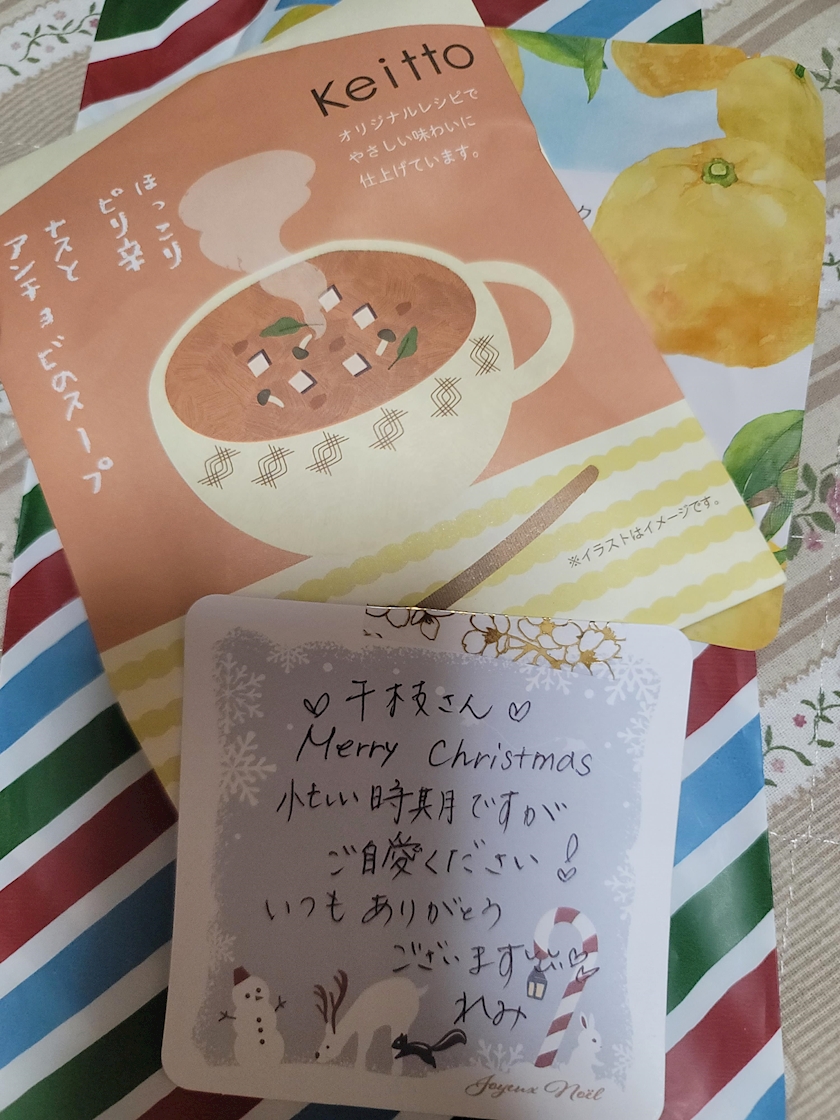 Keitto
オリジナルレシピで
やさしい味わいに
仕上げています。
ほっこり
ピリ辛
ナスと
アンチョビのスープ
※イラストはイメージです。
ク
♡千枝さん♡
Merry Christmas
忙しい時期ですが
ご自愛ください!
いつもありがとう
ございます
れみ
Joyeux Noël